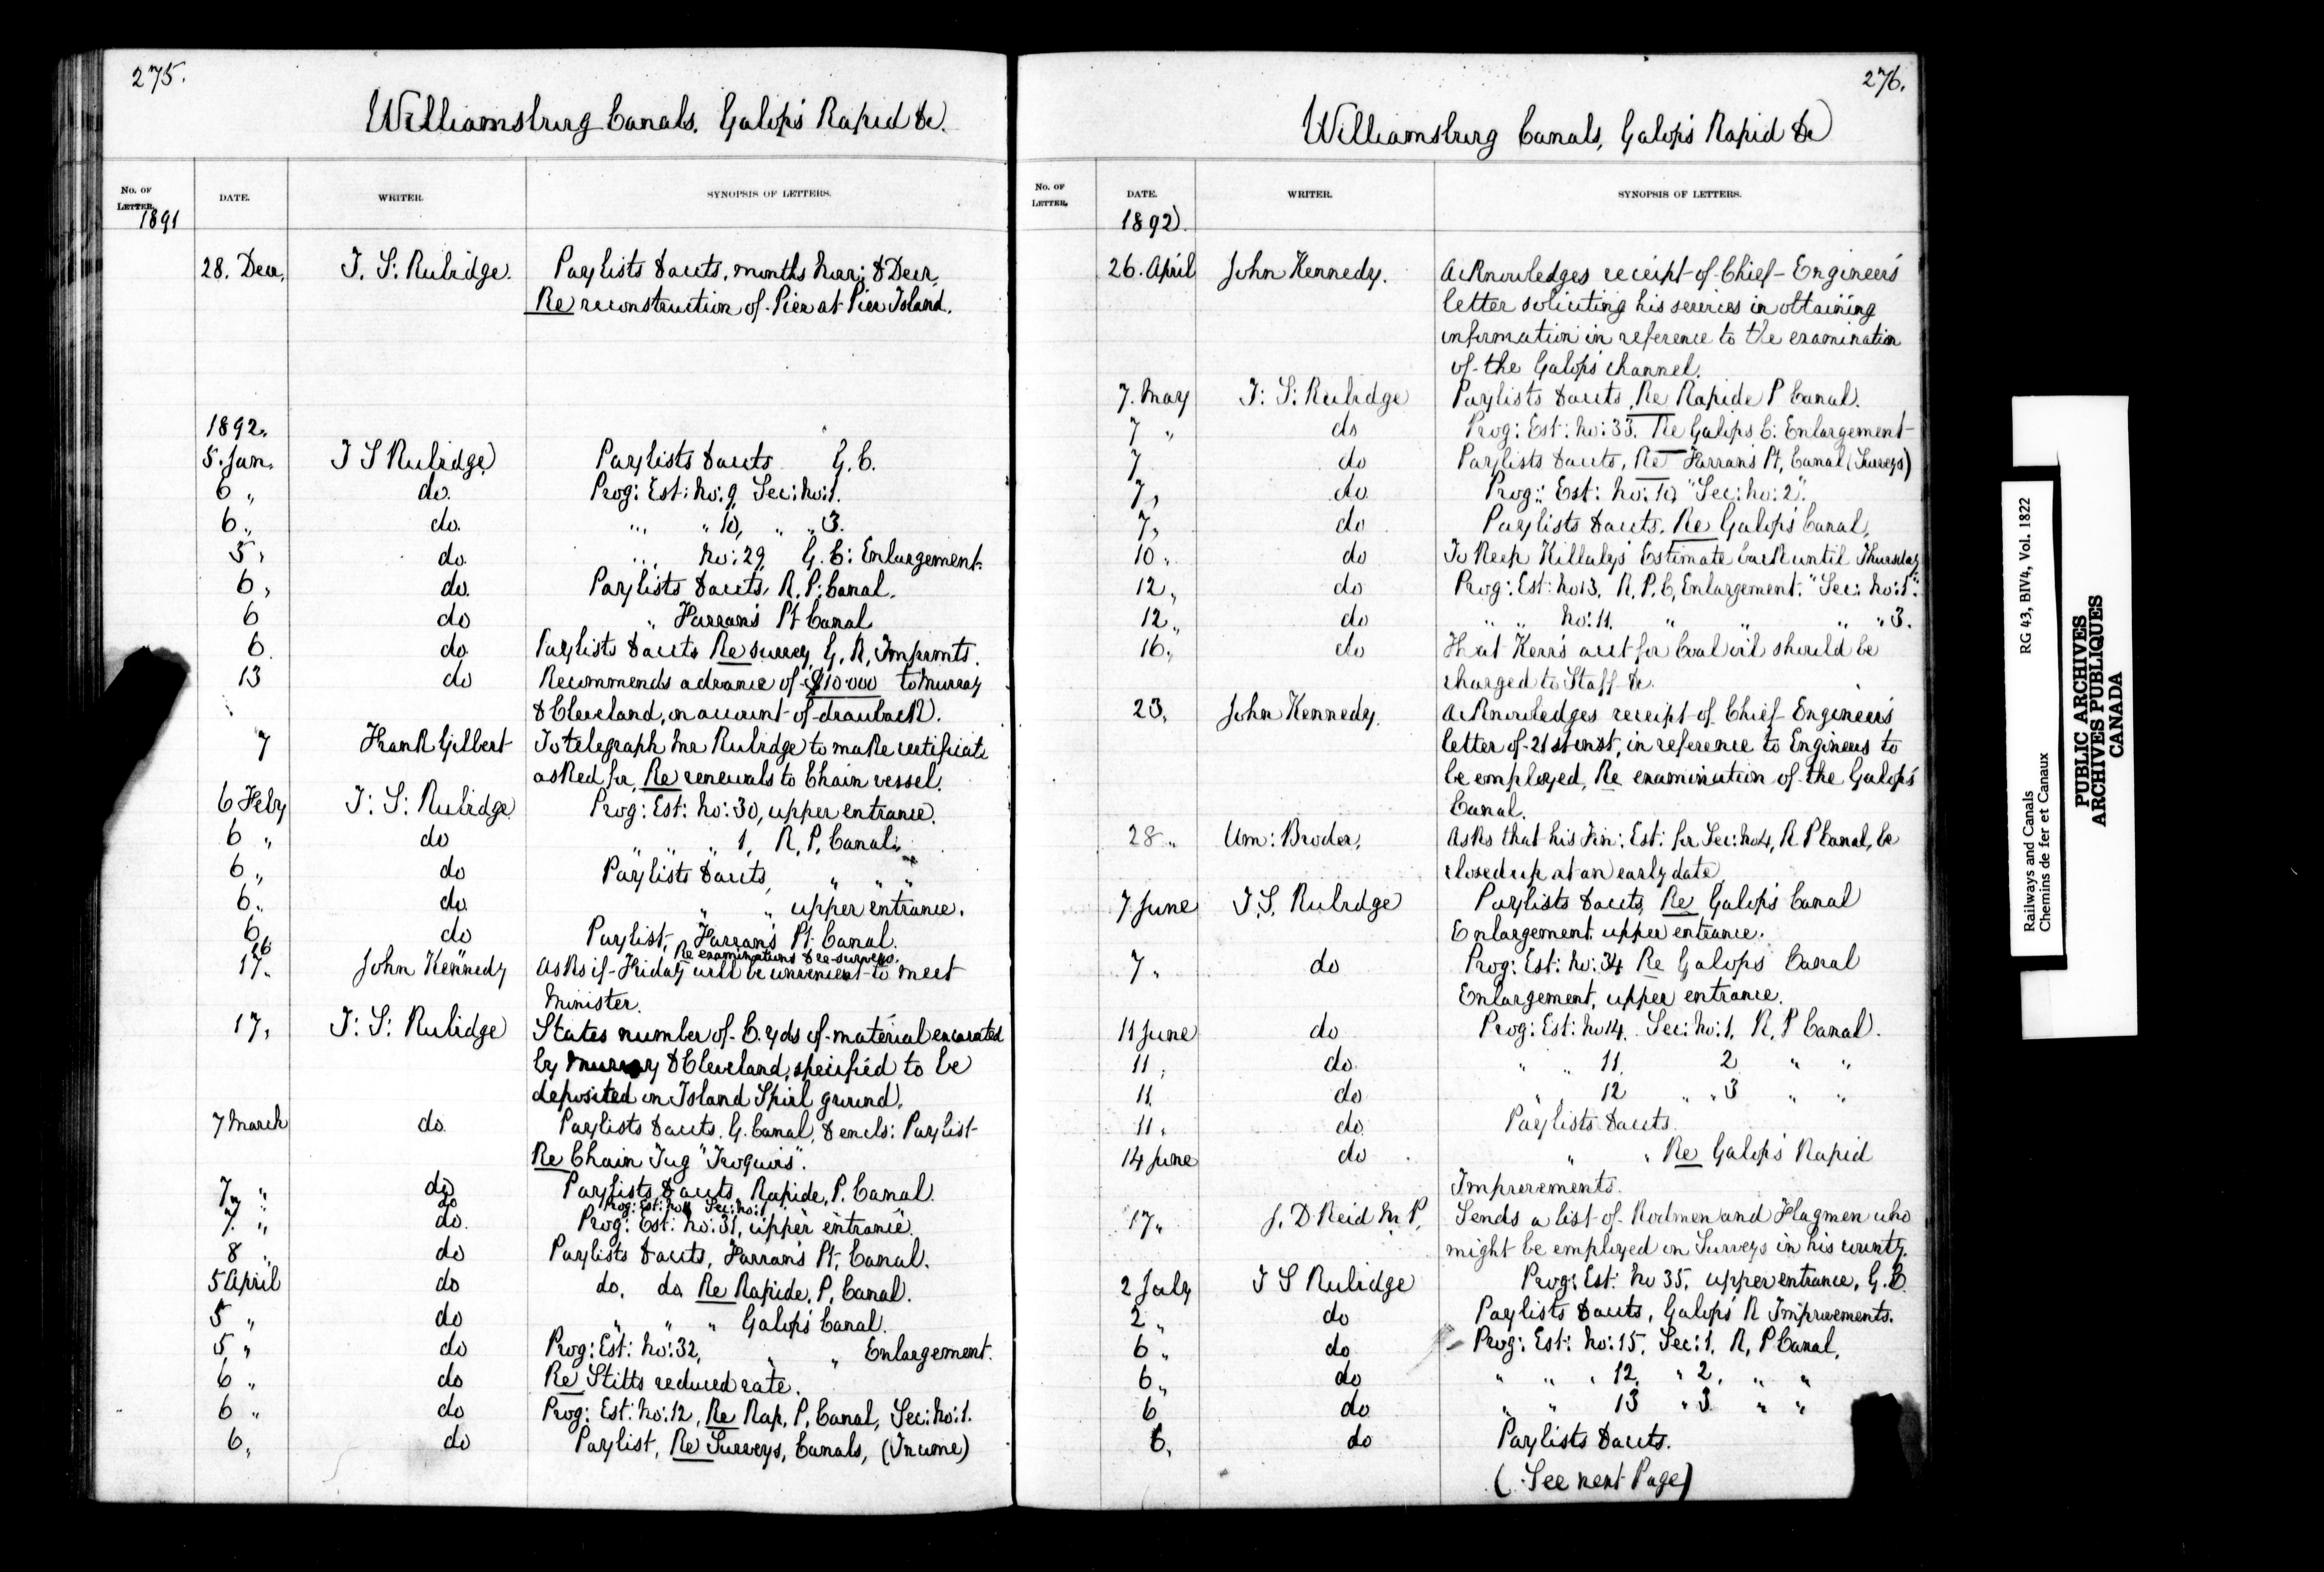 275.
Williamsburg Canals. Galops Rapid &c.
No. OF LETTER. DATE. WRITER. SYNOPSIS OF LETTERS.
1891
28. Decr. T. S: Rubidge. Paylists & accts. months Novr: & Decr.
Re reconstruction of Pier at Pier Island.
1892.
5. Jan. T S Rubidge Paylists & accts G. C.
6 „ do. Prog: Est: No: 9 Sec: No: 1.
6 „ do. „ „ 10, „ „ 3.
5 „ do. „ No: 29, G. C: Enlargement.
6 „ do. Paylists & accts, R. P. Canal.
6 do „ Farran's Pt Canal
6. do Paylists & accts Re survey G. R, Improvmts.
13 do Recommends advance of $10.000 to Murray
& Cleveland, on account of drawback.
7 Frank Gilbert To telegraph Mr Rubidge to make certificate
asked for, Re renewals to Chain vessel.
6 Feby T: S: Rubidge Prog: Est: No: 30, upper entrance.
6 „ do „ „ „ 1, R. P. Canal.
6 „ do Paylists & accts, „ „ „
6 „ do. „ „ upper entrance.
6 do Paylist, Farran's Pt. Canal.
16 „ Re examinations & re-surveys.
17. John Kennedy Asks if Friday will be convenient to meet
Minister.
17, T: S: Rubidge States number of C. yds of material excavated
by Murray & Cleveland, specified to be
deposited on Island Spoil ground.
7 March do. Paylists & accts. G. Canal, & encls: Paylist
Re Chain Tug "Iroquois".
7 „ do Paylists & accts Rapide, P. Canal
7 „ do Prog: Est: No 11 Sec: No: 1
7. „ do. Prog: Est: No: 31, upper entrance.
8 „ do Paylists & accts, Farran's Pt. Canal.
5 April do do. do. Re Rapide, P. Canal.
5 „ do „ „ „ Galops Canal.
5 „ do Prog: Est: No: 32, „ „ Enlargement.
6 „ do Re Stitts reduced rate.
6 „ do Prog: Est: No: 12, Re Rap, P, Canal, Sec: No: 1.
6, do Paylist, Re Surveys, Canals, (Income)
276.
Williamsburg Canals, Galops Rapid &c
No. OF LETTER. DATE. WRITER. SYNOPSIS OF LETTERS.
1892.
26. April John Kennedy. Acknowledges receipt of Chief Engineer's
letter soliciting his services in obtaining
information in reference to the examination
of the Galops channel.
7. May T: S: Rubidge Paylists & accts, Re Rapide P Canal.
7 „ do Prog: Est: No: 33. Re Galops C: Enlargement
7 do Paylists & accts, Re Farran's Pt, Canal (Surveys)
7, do Prog: Est: No: 10 "Sec: No: 2".
7, do Paylists & accts. Re Galops Canal.
10 „ do To keep Killaly's Estimate back until Thursday
12 „ do Prog: Est: No 13. R. P. C, Enlargement. "Sec: No: 1".
12 „ do „ „ No: 11. „ „ „ „ 3.
16 „ do That Kerr's acct for Coal oil should be
charged to Staff &c.
23, John Kennedy. Acknowledges receipt of Chief Engineer's
letter of 21st inst, in reference to Engineers to
be employed, Re examination of the Galops
Canal.
28 „ Wm: Broder, Asks that his Fin: Est: for Sec: No 4, R P Canal, be
closed up at an early date.
7 June T. S. Rubidge Paylists & accts, Re Galops Canal
Enlargement, upper entrance.
7. do Prog: Est: No: 34 Re Galops Canal
Enlargement, upper entrance.
11 June do Prog: Est: No 14. Sec: No: 1. R. P Canal.
11 „ do. „ „ 11. 2 „ „
11. do „ „ 12 „ „ 3 „ „
11. do. Paylists & accts.
14 June do „ „ Re Galops Rapid
Improvements.
17 „ J. D Reid M. P. Sends a list of Rodmen and Flagmen who
might be employed on Surveys in his county.
2 July T S Rubidge Prog: Est: No 35, upper entrance, G. C
2 „ do Paylists & accts, Galops R Improvements.
6 „ do Prog: Est: No: 15, Sec: 1. R. P Canal,
6 „ do „ „ „ 12, „ 2, „ „
6 do „ „ 13 „ 3 „ „
6. do Paylists & accts.
(See next Page)
Railways and Canals RG 43, BIV4, Vol. 1822
Chemins de fer et Canaux
PUBLIC ARCHIVES
ARCHIVES PUBLIQUES
CANADA